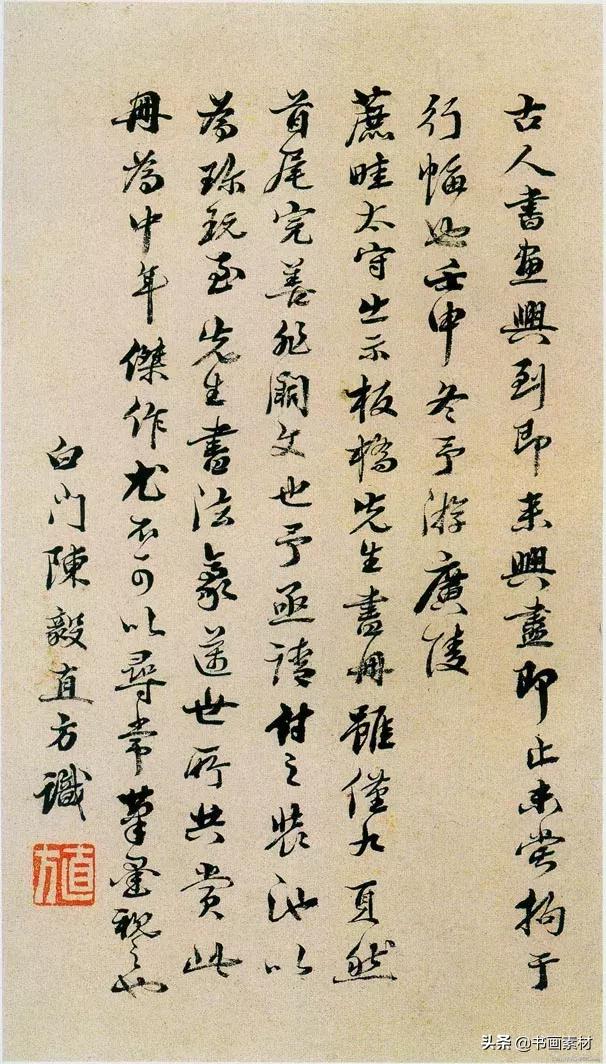 古人書畫興到即来興盡即止未嘗拘于
行幅也壬申冬予游廣陵
蔗畦太守出示板橋先生書冊雖僅九頁然
首尾完善非闕文也予亟請付之裝池以
為珍玩至先生書法豪邁世所共賞此
冊為中年傑作尤不可以尋常筆墨視之也
白門陳毅直方識
直方
头条 @书画素材